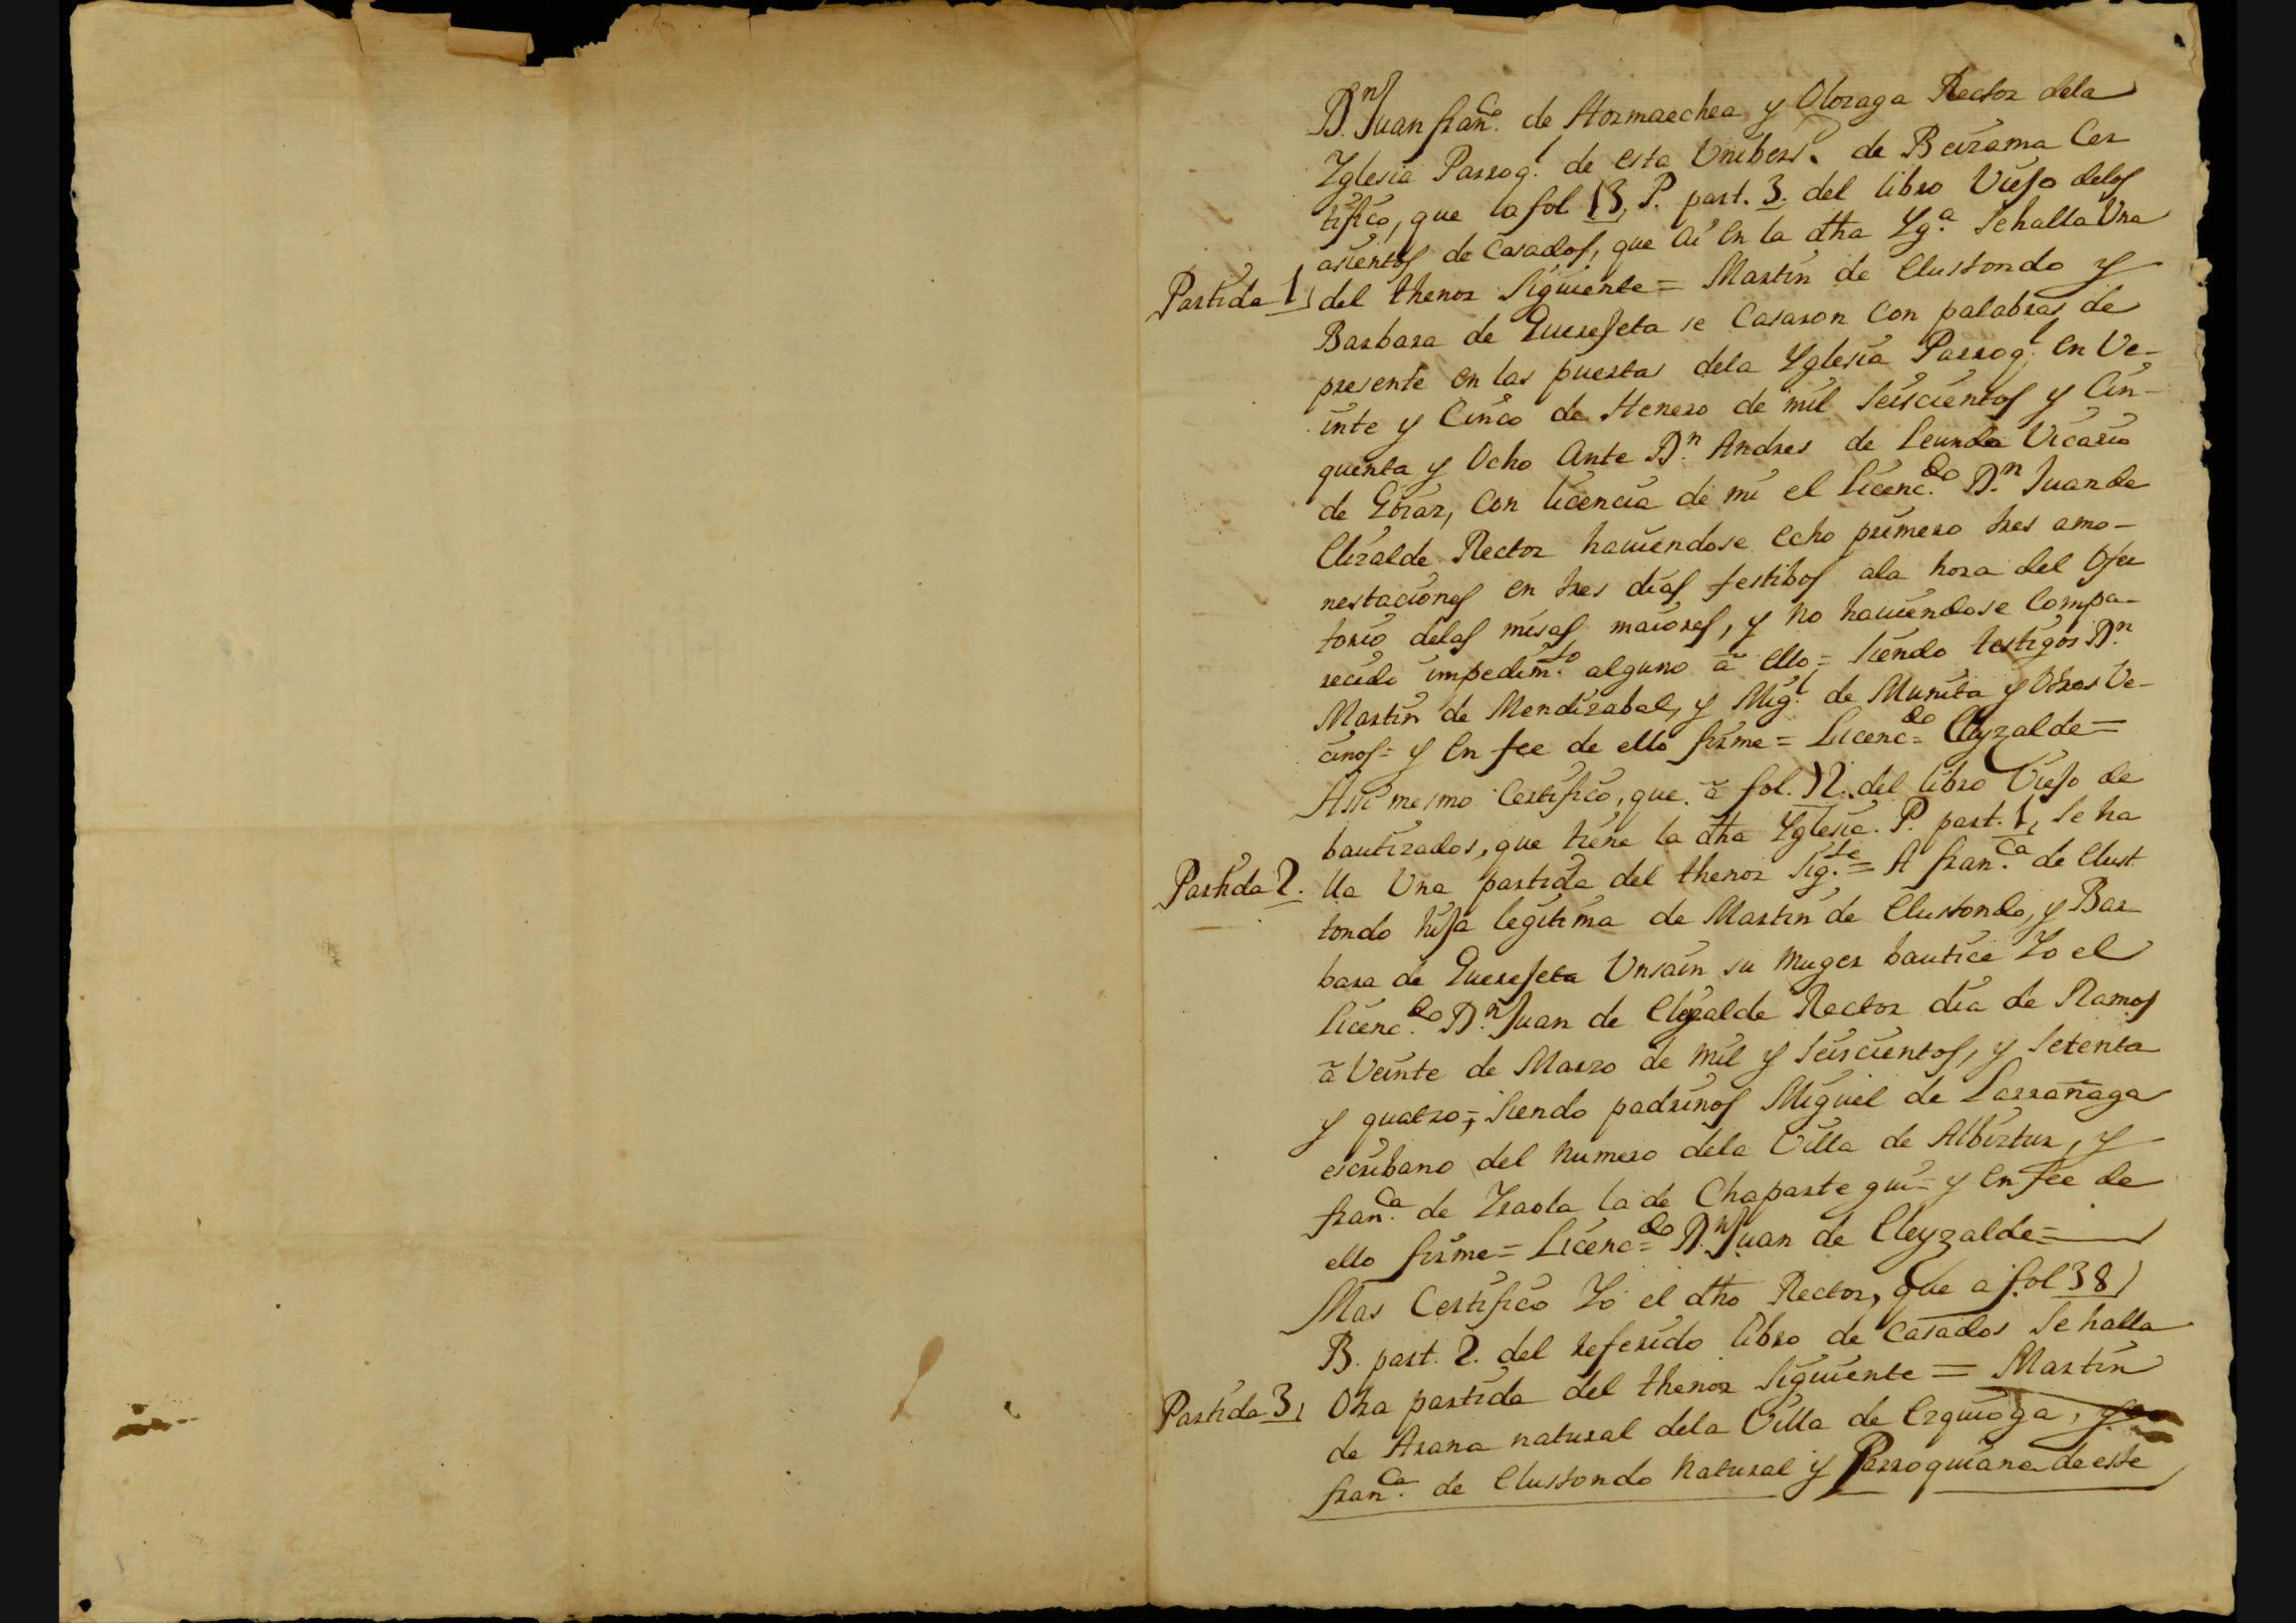 Dn. Juan franco. de Hormaechea y Olozaga Rector dela
Yglesia Parrogl. de esta Unibersd. de Beizama Cer
tifico, que a fol 13, P. part. 3. del libro Viejo delos
asientos de Casados, que ai en la dha Yga. Sehalla Una
Partida 1, del thenor Siguiente = Martin de Elustondo y
Barbara de Querejeta se Casaron Con palabras de
presente en las puertas dela Yglesia Parrogl. en Ve-
inte y Cinco de Henero de mil Seiscientos y Cin-
quenta y Ocho Ante Dn. Andres de Leunda Vicario
de Goiaz, Con licencia de mi el Licencdo. Dn. Juan de
Elizalde Rector haviendose echo primero tres amo-
nestaciones en tres dias festibos ala hora del Ofer
torio delas misas maiores, y no haviendose Compa-
recido impedimto. alguno â ello = Siendo testigos Dn.
Martin de Mendizabal, y Migl. de Munita y Otros Ve-
cinos = y en fee de ello firme = Licencdo = Eleyzalde =
Assi mesmo Certifico, que â fol. 12. del libro Viejo de
bautizados, que tiene la dha Yglesia. P. part. 1, Se ha
Partida 2. lla Una partida del thenor Sigte. = A franca. de Elust
tondo hija legitima de Martin de Elustondo, y Bar
bara de Querejeta Unsain su muger bautice Yo el
Licencdo. Dn. Juan de Eleyzalde Rector dia de Ramos
â Veinte de Marzo de mil y Seiscientos, y Setenta
y quatro =, Siendo padrinos Miguel de Larrañaga
escribano del numero dela Villa de Albiztur, y
franca. de Yraola la de Chaparte gui = y en fee de
ello firme = Licencdo = Dn. Juan de Eleyzalde =
Mas Certifico Yo el dho Rector, que a fol 38,
B. part. 2. del referido libro de Casados Se halla
Partida 3, Otra partida del thenor Siguiente = Martin
de Arana natural dela Villa de Ezquioga, y
franca. de Elustondo Natural y Parroquiana de este